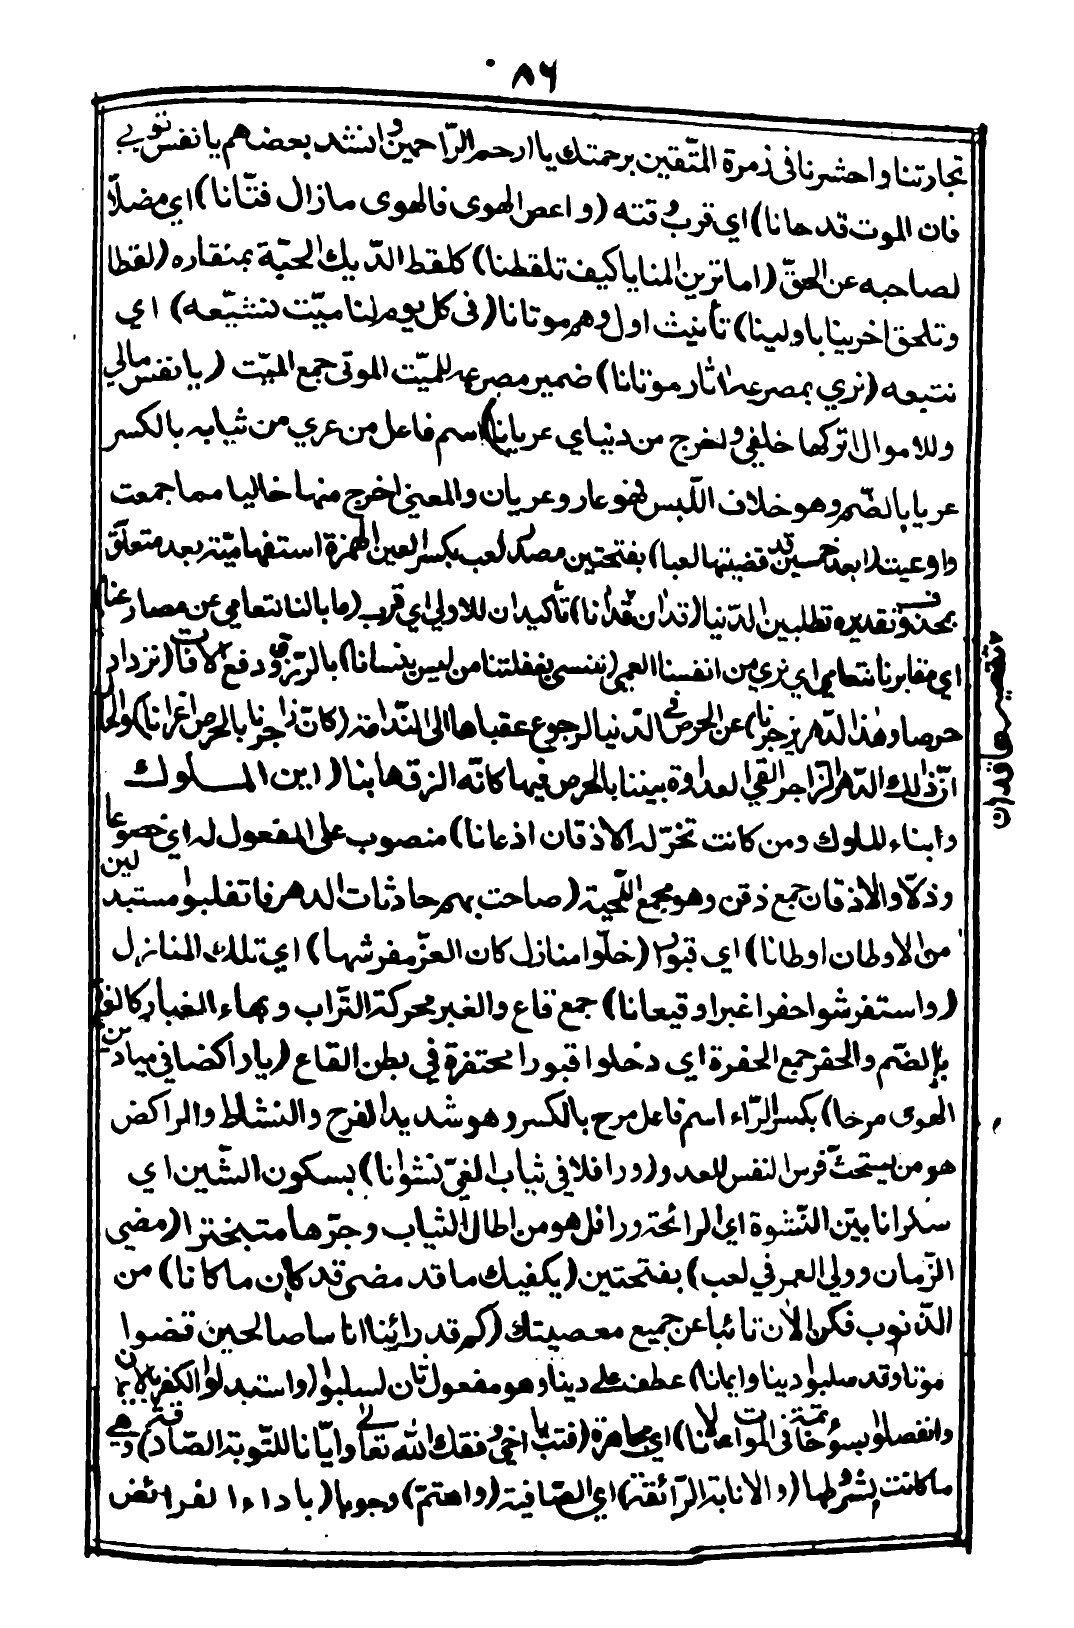 ٨٦
تجارتنا واحشرنا فى زمرة المتّقين برحمتك يا ارحم الرّاحمين وانشد بعضهم يا نفس توبي
فان الموت قد حانا) اي قرب وقته (واعص الهوى فالهوى مازال فتّانا) اي مضلّا
لصاحبه عن الحقّ (اما ترين المنايا كيف تلقطنا) كلقط الدّيك الحبّة بمنقاره (لقطا
وتلحق اخرينا باولينا) تأنيث اول وهم موتانا (فى كل يوم لنا ميّت نشيّعه) اي
نتبعه (نري بمصرعه اثار موتانا) ضمير مصرعه للميّت الموتى جمع الميّت (يا نفس مالي
وللاموال اتركها خلفي واخرج من دنياي عريانا) اسم فاعل من عري من ثيابه بالكسر
عريا بالضّم وهو خلاف اللّبس فهو عار وعريان والمعني اخرج منها خاليا مما جمعت
واوعيت (ابعد خمسين قد قضيتها لعبا) بفتحتين مصدر لعب بكسر العين الهمزة استفهاميّة بعد متعلّق
بمحذوف تقديره تطلبين الدّنيا (قد ان قد انا) تأكيد ان للاولى اي قرب (ما بالنا نتعامي عن مصارعنا)
اي مقابرنا نتعامي اي نري من انفسنا العمي (ننسى بغفلتنا من ليس ينسانا) بالرّزق ودفع الآفات (نزداد
حرصا وهذا الدّهر يزجرنا) عن الحرص في الدّنيا لرجوع عقباها الى النّدامة (كانّ زاجرنا بالحرص اغرانا) والحال
انّ ذلك الدّهر الزّاجر القي العداوة بيننا بالحرص فيها كانّه الزقها بنا (اين الملوك
وابناء الملوك ومن كانت تخرّ له الاذقان اذعانا) منصوب على المفعول له اي خضوعا
وذلّا والاذقان جمع ذقن وهو مجمع اللّحية (صاحت بهم حادثات الدهر فانقلبوا مستبدلين
من الاوطان اوطانا) اي قبورا (خلّوا منازل كان العزّ مفرشها) اي تلك المنازل
(واستفرشوا حفرا غبرا وقيعانا) جمع قاع والغبر محركة التّراب وبهاء الغبار كالغبرة
بالضّم والحفر جمع الحفرة اي دخلوا قبورا محتفرة في بطن القاع (يا راكضا في ميادين
الهوى مرحا) بكسر الرّاء اسم فاعل مرح بالكسر وهو شديد الفرح والنشاط والراكض
هو من يستحثّ فرس النفس للعدو (ورافلا في ثياب الغيّ نشوانا) بسكون الشّين اي
سكرانا بيّن النّشوة اي الرائحة ورافل هو من اطال الثياب وجرّها متبخترا (مضى
الزّمان وولى العمر في لعب) بفتحتين (يكفيك ما قد مضى قد كان ما كانا) من
الذّنوب فكن الآن تائبا عن جميع معصيتك (كم قد رائنا اناسا صالحين قضوا
موتا وقد سلبوا دينا وايمانا) عطف على دينا وهو مفعول ثان لسلبوا (واستبدلوا الكفر بالايمان
وانفصلوا بسوء خاتمة في الموت لانا) اي مجاهرة (فتب يا اخي وفقك الله تعالى وايّانا للتّوبة الصّادقة) وهي
ما كانت بشروطها (والانابة الرّائقة) اي الصّافية (واهتمّ) وجوبا (باداء الفرائض